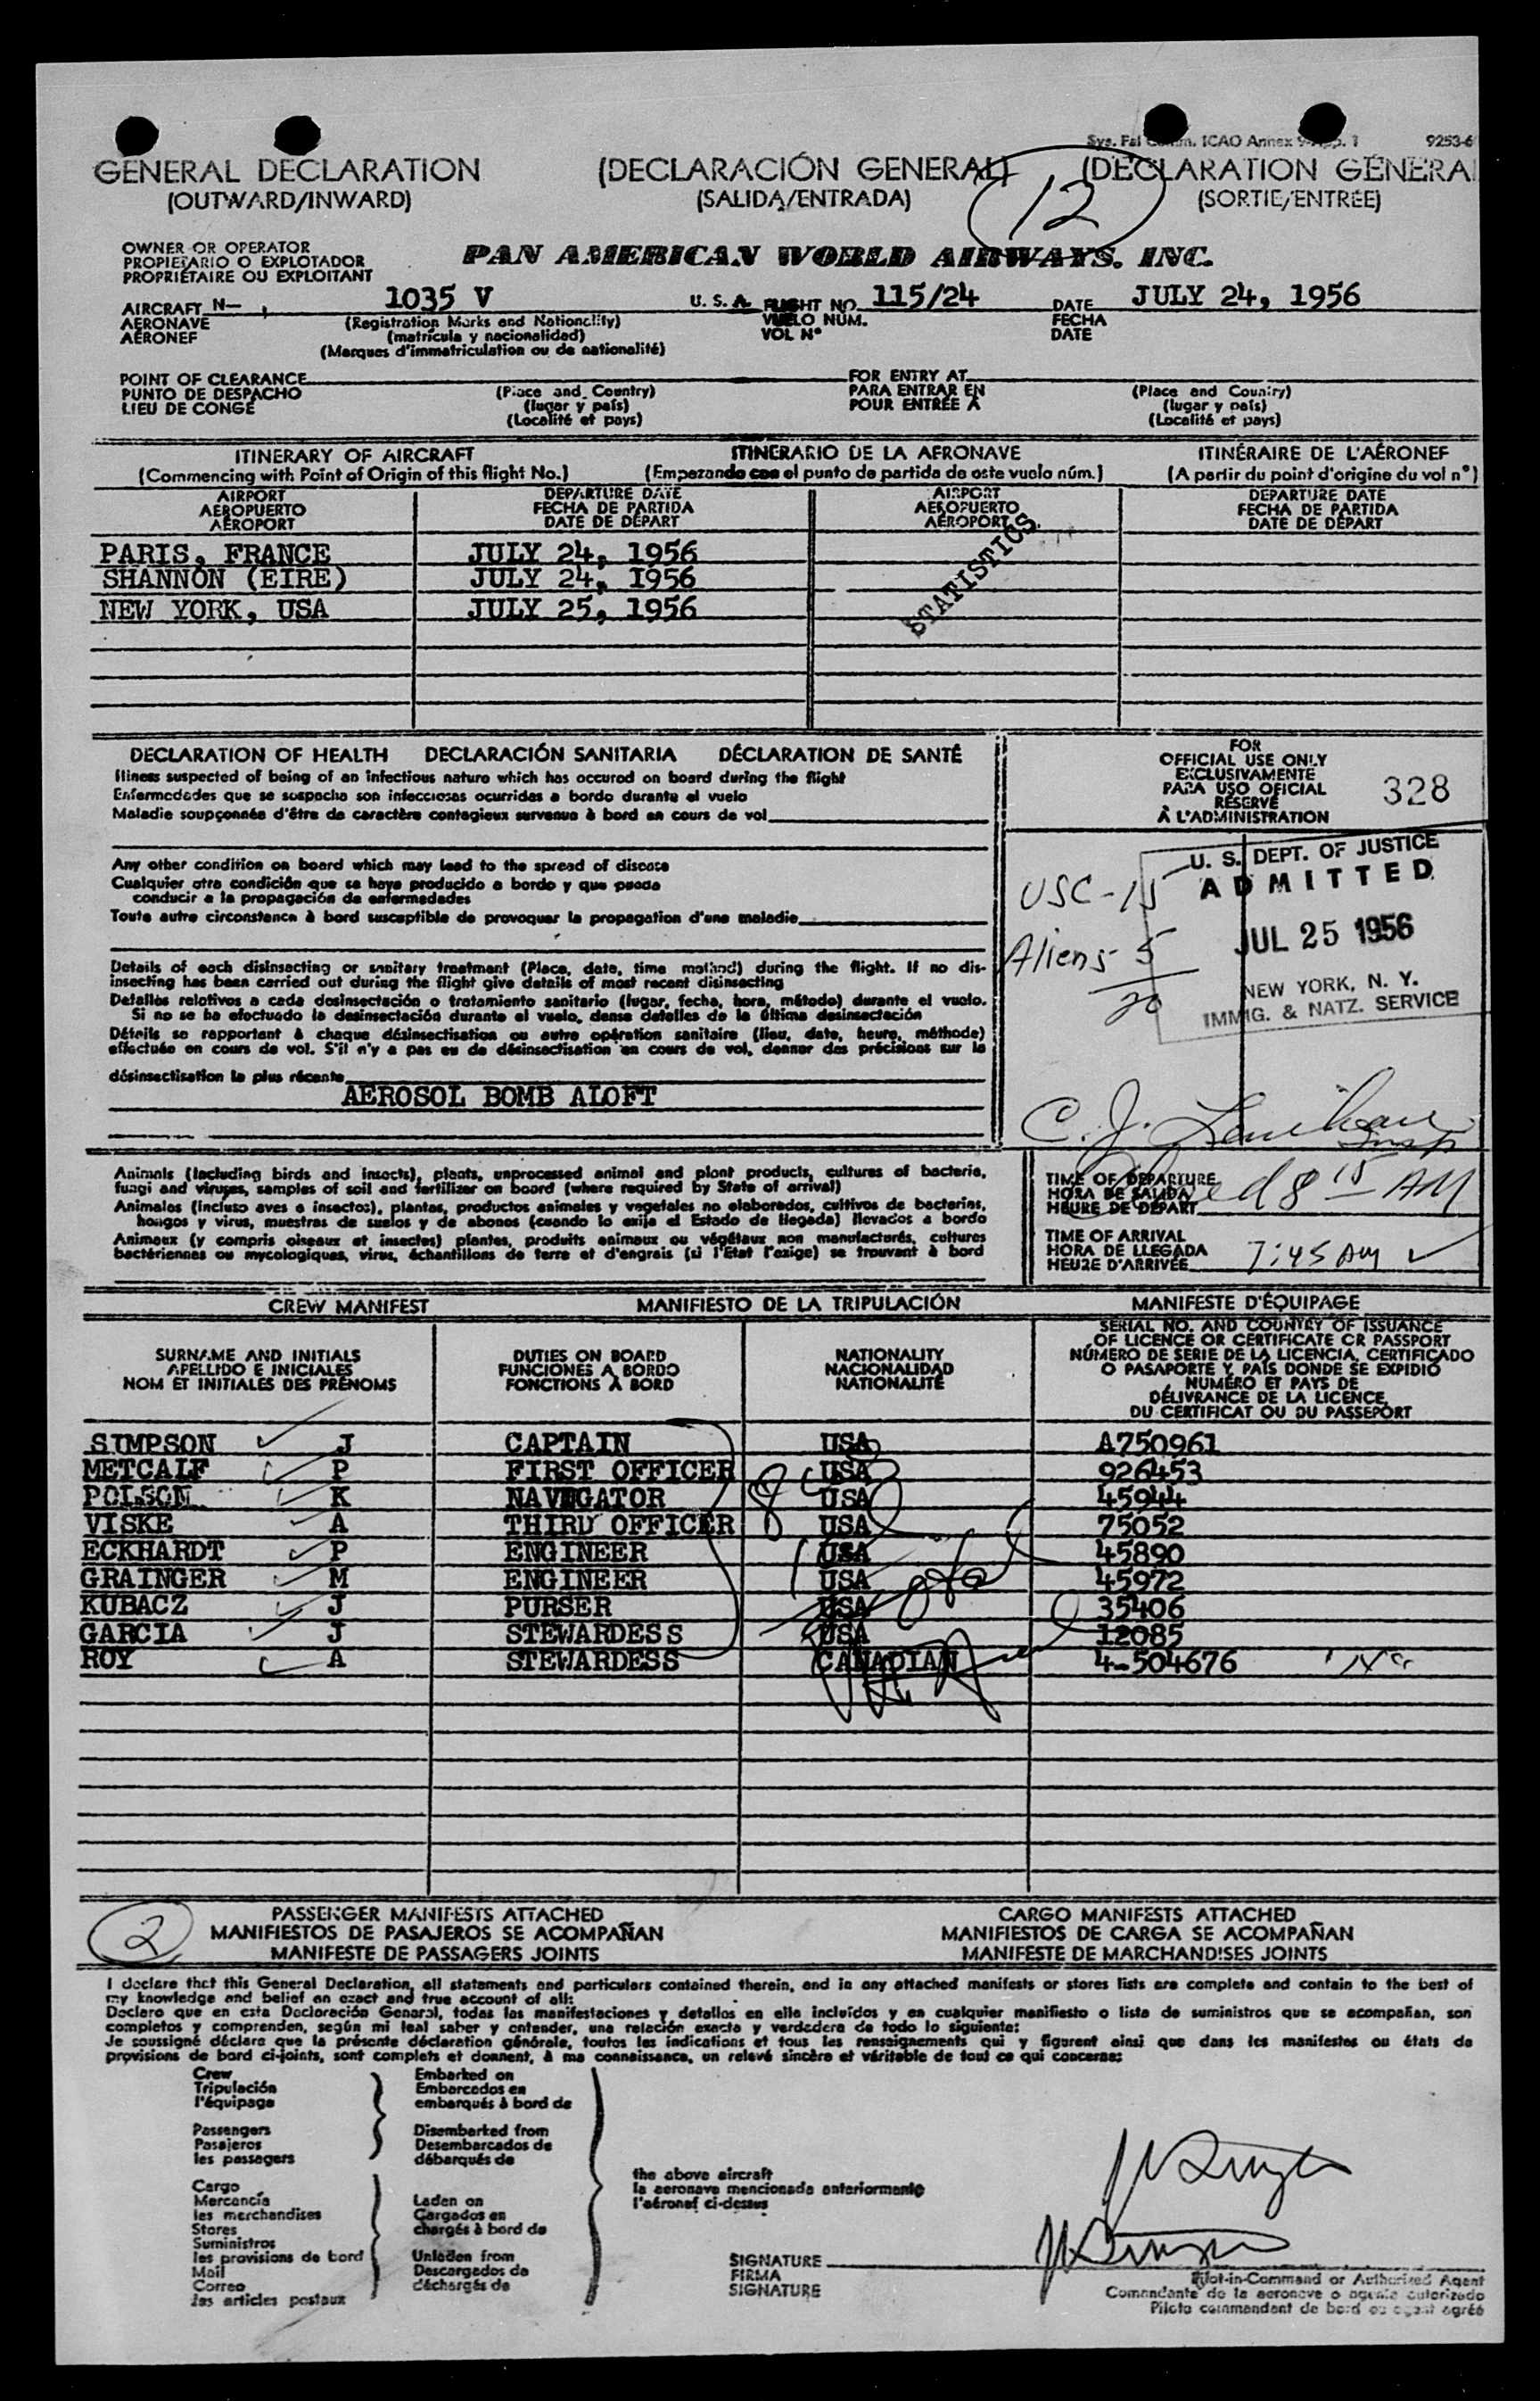 Sys. Fal Comm. ICAO Annex 9-App. 1 9253-6
GENERAL DECLARATION (DECLARACIÓN GENERAL) (DECLARATION GÉNÉRA
(OUTWARD/INWARD) (SALIDA/ENTRADA) (SORTIE/ENTRÉE)
12
OWNER OR OPERATOR
PROPIETARIO O EXPLOTADOR
PROPRIÉTAIRE OU EXPLOITANT
PAN AMERICAN WORLD AIRWAYS, INC.
AIRCRAFT N- 1035 V U. S. A. FLIGHT NO. 115/24 DATE JULY 24, 1956
AERONAVE (Registration Marks and Nationality) VUELO NÚM. FECHA
AÉRONEF (matrícula y nacionalidad) VOL N° DATE
(Marques d'immatriculation ou de nationalité)
POINT OF CLEARANCE FOR ENTRY AT
PUNTO DE DESPACHO (Place and Country) PARA ENTRAR EN (Place and Country)
LIEU DE CONGÉ (lugar y país) POUR ENTRÉE À (lugar y país)
(Localité et pays) (Localité et pays)
ITINERARY OF AIRCRAFT ITINERARIO DE LA AERONAVE ITINÉRAIRE DE L'AÉRONEF
(Commencing with Point of Origin of this flight No.) (Empezando con el punto de partida de este vuelo núm.) (A partir du point d'origine du vol n°)
AIRPORT DEPARTURE DATE AIRPORT DEPARTURE DATE
AEROPUERTO FECHA DE PARTIDA AEROPUERTO FECHA DE PARTIDA
AÉROPORT DATE DE DÉPART AÉROPORT DATE DE DÉPART
PARIS, FRANCE JULY 24, 1956
SHANNON (EIRE) JULY 24, 1956
NEW YORK, USA JULY 25, 1956
STATISTICS
DECLARATION OF HEALTH DECLARACIÓN SANITARIA DÉCLARATION DE SANTÉ
Illness suspected of being of an infectious nature which has occured on board during the flight
Enfermedades que se sospecha son infecciosas ocurridas a bordo durante el vuelo
Maladie soupçonnée d'être de caractère contagieux survenue à bord en cours de vol
Any other condition on board which may lead to the spread of disease
Cualquier otra condición que se haya producido a bordo y que pueda
conducir a la propagación de enfermedades
Toute autre circonstance à bord susceptible de provoquer la propagation d'une maladie
Details of each disinsecting or sanitary treatment (Place, date, time method) during the flight. If no dis-
insecting has been carried out during the flight give details of most recent disinsecting
Detalles relativos a cada desinsectación o tratamiento sanitario (lugar, fecha, hora, método) durante el vuelo.
Si no se ha efectuado la desinsectación durante el vuelo, dense detalles de la última desinsectación
Détails se rapportant à chaque désinsectisation ou autre opération sanitaire (lieu, date, heure, méthode)
effectuée en cours de vol. S'il n'y a pas eu de désinsectisation en cours de vol, donner des précisions sur la
désinsectisation la plus récente
AEROSOL BOMB ALOFT
FOR
OFFICIAL USE ONLY
EXCLUSIVAMENTE
PARA USO OFICIAL
RÉSERVÉ
À L'ADMINISTRATION
328
USC-15
Aliens 5
20
U. S. DEPT. OF JUSTICE
ADMITTED
JUL 25 1956
NEW YORK, N. Y.
IMMIG. & NATZ. SERVICE
C. J.
Insp
Animals (including birds and insects), plants, unprocessed animal and plant products, cultures of bacteria,
fungi and viruses, samples of soil and fertilizer on board (where required by State of arrival)
Animales (incluso aves e insectos), plantas, productos animales y vegetales no elaborados, cultivos de bacterias,
hongos y virus, muestras de suelos y de abonos (cuando lo exija el Estado de llegada) llevados a bordo
Animaux (y compris oiseaux et insectes) plantes, produits animaux ou végétaux non manufacturés, cultures
bactériennes ou mycologiques, virus, échantillons de terre et d'engrais (si l'État l'exige) se trouvant à bord
TIME OF DEPARTURE
HORA DE SALIDA
HEURE DE DÉPART
8 15 AM
TIME OF ARRIVAL
HORA DE LLEGADA
HEURE D'ARRIVÉE
7:45 AM
CREW MANIFEST MANIFIESTO DE LA TRIPULACIÓN MANIFESTE D'ÉQUIPAGE
SURNAME AND INITIALS
APELLIDO E INICIALES
NOM ET INITIALES DES PRÉNOMS
DUTIES ON BOARD
FUNCIONES A BORDO
FONCTIONS À BORD
NATIONALITY
NACIONALIDAD
NATIONALITÉ
SERIAL NO. AND COUNTRY OF ISSUANCE
OF LICENCE OR CERTIFICATE OR PASSPORT
NÚMERO DE SERIE DE LA LICENCIA, CERTIFICADO
O PASAPORTE Y PAÍS DONDE SE EXPIDIÓ
NUMÉRO ET PAYS DE
DÉLIVRANCE DE LA LICENCE,
DU CERTIFICAT OU DU PASSEPORT
SIMPSON J CAPTAIN USA A750961
METCALF P FIRST OFFICER USA 926453
POLSON K NAVIGATOR USA 45944
VISKE A THIRD OFFICER USA 75052
ECKHARDT P ENGINEER USA 45890
GRAINGER M ENGINEER USA 45972
KUBACZ J PURSER USA 35406
GARCIA J STEWARDESS USA 12085
ROY A STEWARDESS CANADIAN 4-504676
2
PASSENGER MANIFESTS ATTACHED CARGO MANIFESTS ATTACHED
MANIFIESTOS DE PASAJEROS SE ACOMPAÑAN MANIFIESTOS DE CARGA SE ACOMPAÑAN
MANIFESTE DE PASSAGERS JOINTS MANIFESTE DE MARCHANDISES JOINTS
I declare that this General Declaration, all statements and particulars contained therein, and in any attached manifests or stores lists are complete and contain to the best of
my knowledge and belief an exact and true account of all:
Declaro que en esta Declaración General, todas las manifestaciones y detalles en ella incluídos y en cualquier manifiesto o lista de suministros que se acompañan, son
completos y comprenden, según mi leal saber y entender, una relación exacta y verdadera de todo lo siguiente:
Je soussigné déclare que la présente déclaration générale, toutes les indications et tous les renseignements qui y figurent ainsi que dans les manifestes ou états de
provisions de bord ci-joints, sont complets et donnent, à ma connaissance, un relevé sincère et véritable de tout ce qui concerne:
Crew Embarked on
Tripulación Embarcados en
l'équipage embarqués à bord de
Passengers Disembarked from
Pasajeros Desembarcados de
les passagers débarqués de
the above aircraft
la aeronave mencionada anteriormente
l'aéronef ci-dessus
Cargo
Mercancía Laden on
les merchandises Cargados en
Stores chargés à bord de
Suministros
les provisions de bord Unladen from
Mail Descargados de
Correo déchargés de
les articles postaux
SIGNATURE
FIRMA
SIGNATURE
Pilot-in-Command or Authorized Agent
Comandante de la aeronave o agente autorizado
Pilote commandant de bord ou agent agréé